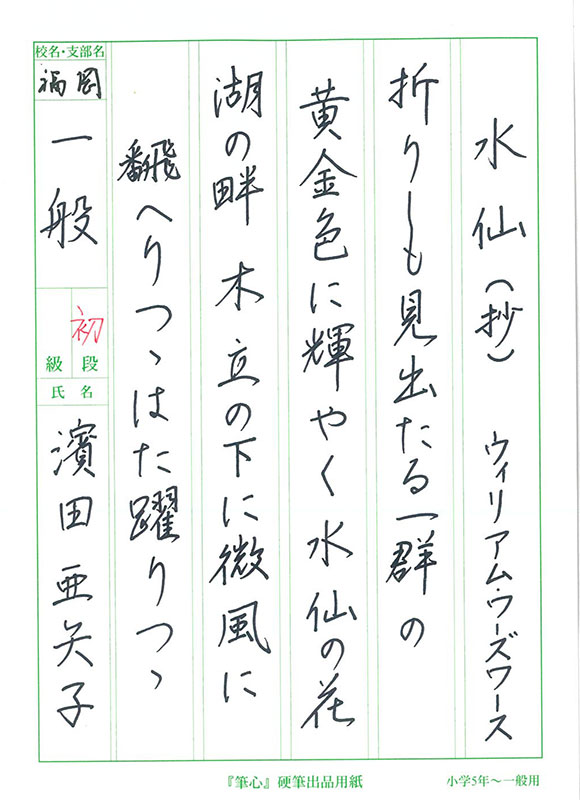 水仙（抄）　ウィリアム・ワーズワース
折りしも見出たる一群の
黄金色に輝やく水仙の花
湖の畔　木立の下に微風に
翻へりつゝはた躍りつゝ
校名・支部名
福岡
一般
初
級 段
氏 名
濱田亜矢子
『筆心』硬筆出品用紙
小学5年〜一般用